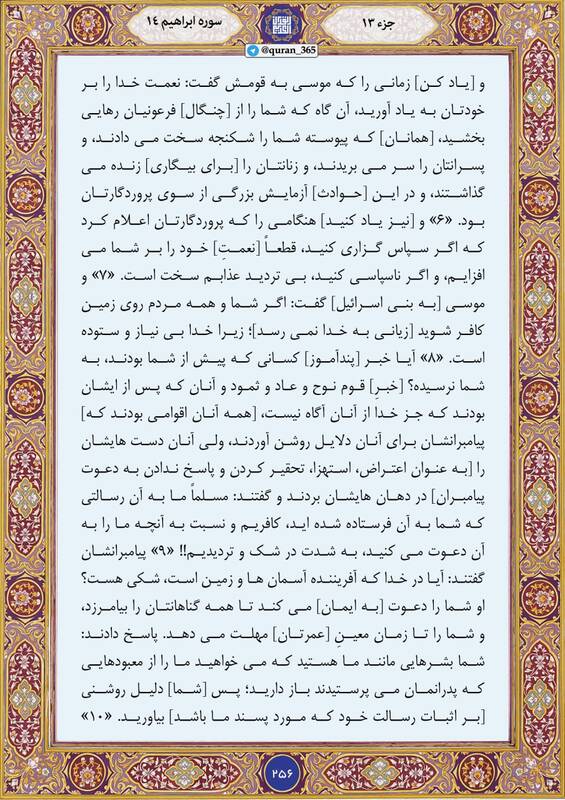 جزء ۱۳
سوره ابراهیم ۱۴
@quran_365
و [یـاد کـن] زمانی را کـه موسی به قومش گفـت: نعمـت خدا را بر
خودتان به یاد آورید، آن گاه که شما را از [چنگال] فرعونیان رهایی
بخشید، [همانان] که پیوسته شما را شکنجه سخت می دادند، و
پسرانتان را سـر می بریدند، و زنانتان را [برای بیگاری] زنده می
گذاشـتند، و در این [حوادث] آزمایش بزرگی از سوی پروردگارتان
بود. «۶» و [نیـز یاد کنید] هنگامی را که پروردگارتان اعلام کرد
که اگـر سپاس گزاری کنید، قطعـاً [نعمـتِ] خود را بر شـما می
افزایـم، و اگـر ناسپاسی کنید، بی تردید عذابم سخت است. «۷» و
موسی [به بنی اسرائیل] گفت: اگـر شما و همه مردم روی زمین
کافر شوید [زیانی به خدا نمی رسد]؛ زیرا خدا بی نیاز و ستوده
اسـت. «۸» آیـا خبـر [پندآموز] کسانی که پیـش از شما بودند، به
شما نرسیده؟ [خبرِ] قـوم نوح و عاد و ثمود و آنان که پس از ایشان
بودند که جـز خدا از آنان آگاه نیست، [همه آنان اقوامی بودند که]
پیامبرانشان برای آنان دلایل روشن آوردند، ولی آنان دست هایشان
را [به عنوان اعتراض، استهزا، تحقیر کردن و پاسخ ندادن به دعوت
پیامبران] در دهان هایشان بردند و گفتند: مسلماً ما به آن رسالتی
که شما به آن فرستاده شده اید، کافریم و نسبت به آنچه ما را به
آن دعوت می کنید، به شدت در شک و تردیدیم!! «۹» پیامبرانشان
گفتند: آیا در خدا که آفریننده آسمان ها و زمین است، شکی هست؟
او شما را دعوت [به ایمان] می کند تـا همه گناهانتان را بیامرزد،
و شمـا را تـا زمان معینِ [عمرتان] مهلت می دهد. پاسخ دادند:
شما بشرهایی مانند ما هستید که می خواهید ما را از معبودهایی
که پدرانمان می پرستیدند باز دارید؛ پس [شما] دلیل روشنی
[بر اثبات رسالت خود که مورد پسند ما باشد] بیاورید. «۱۰»
۲۵۶